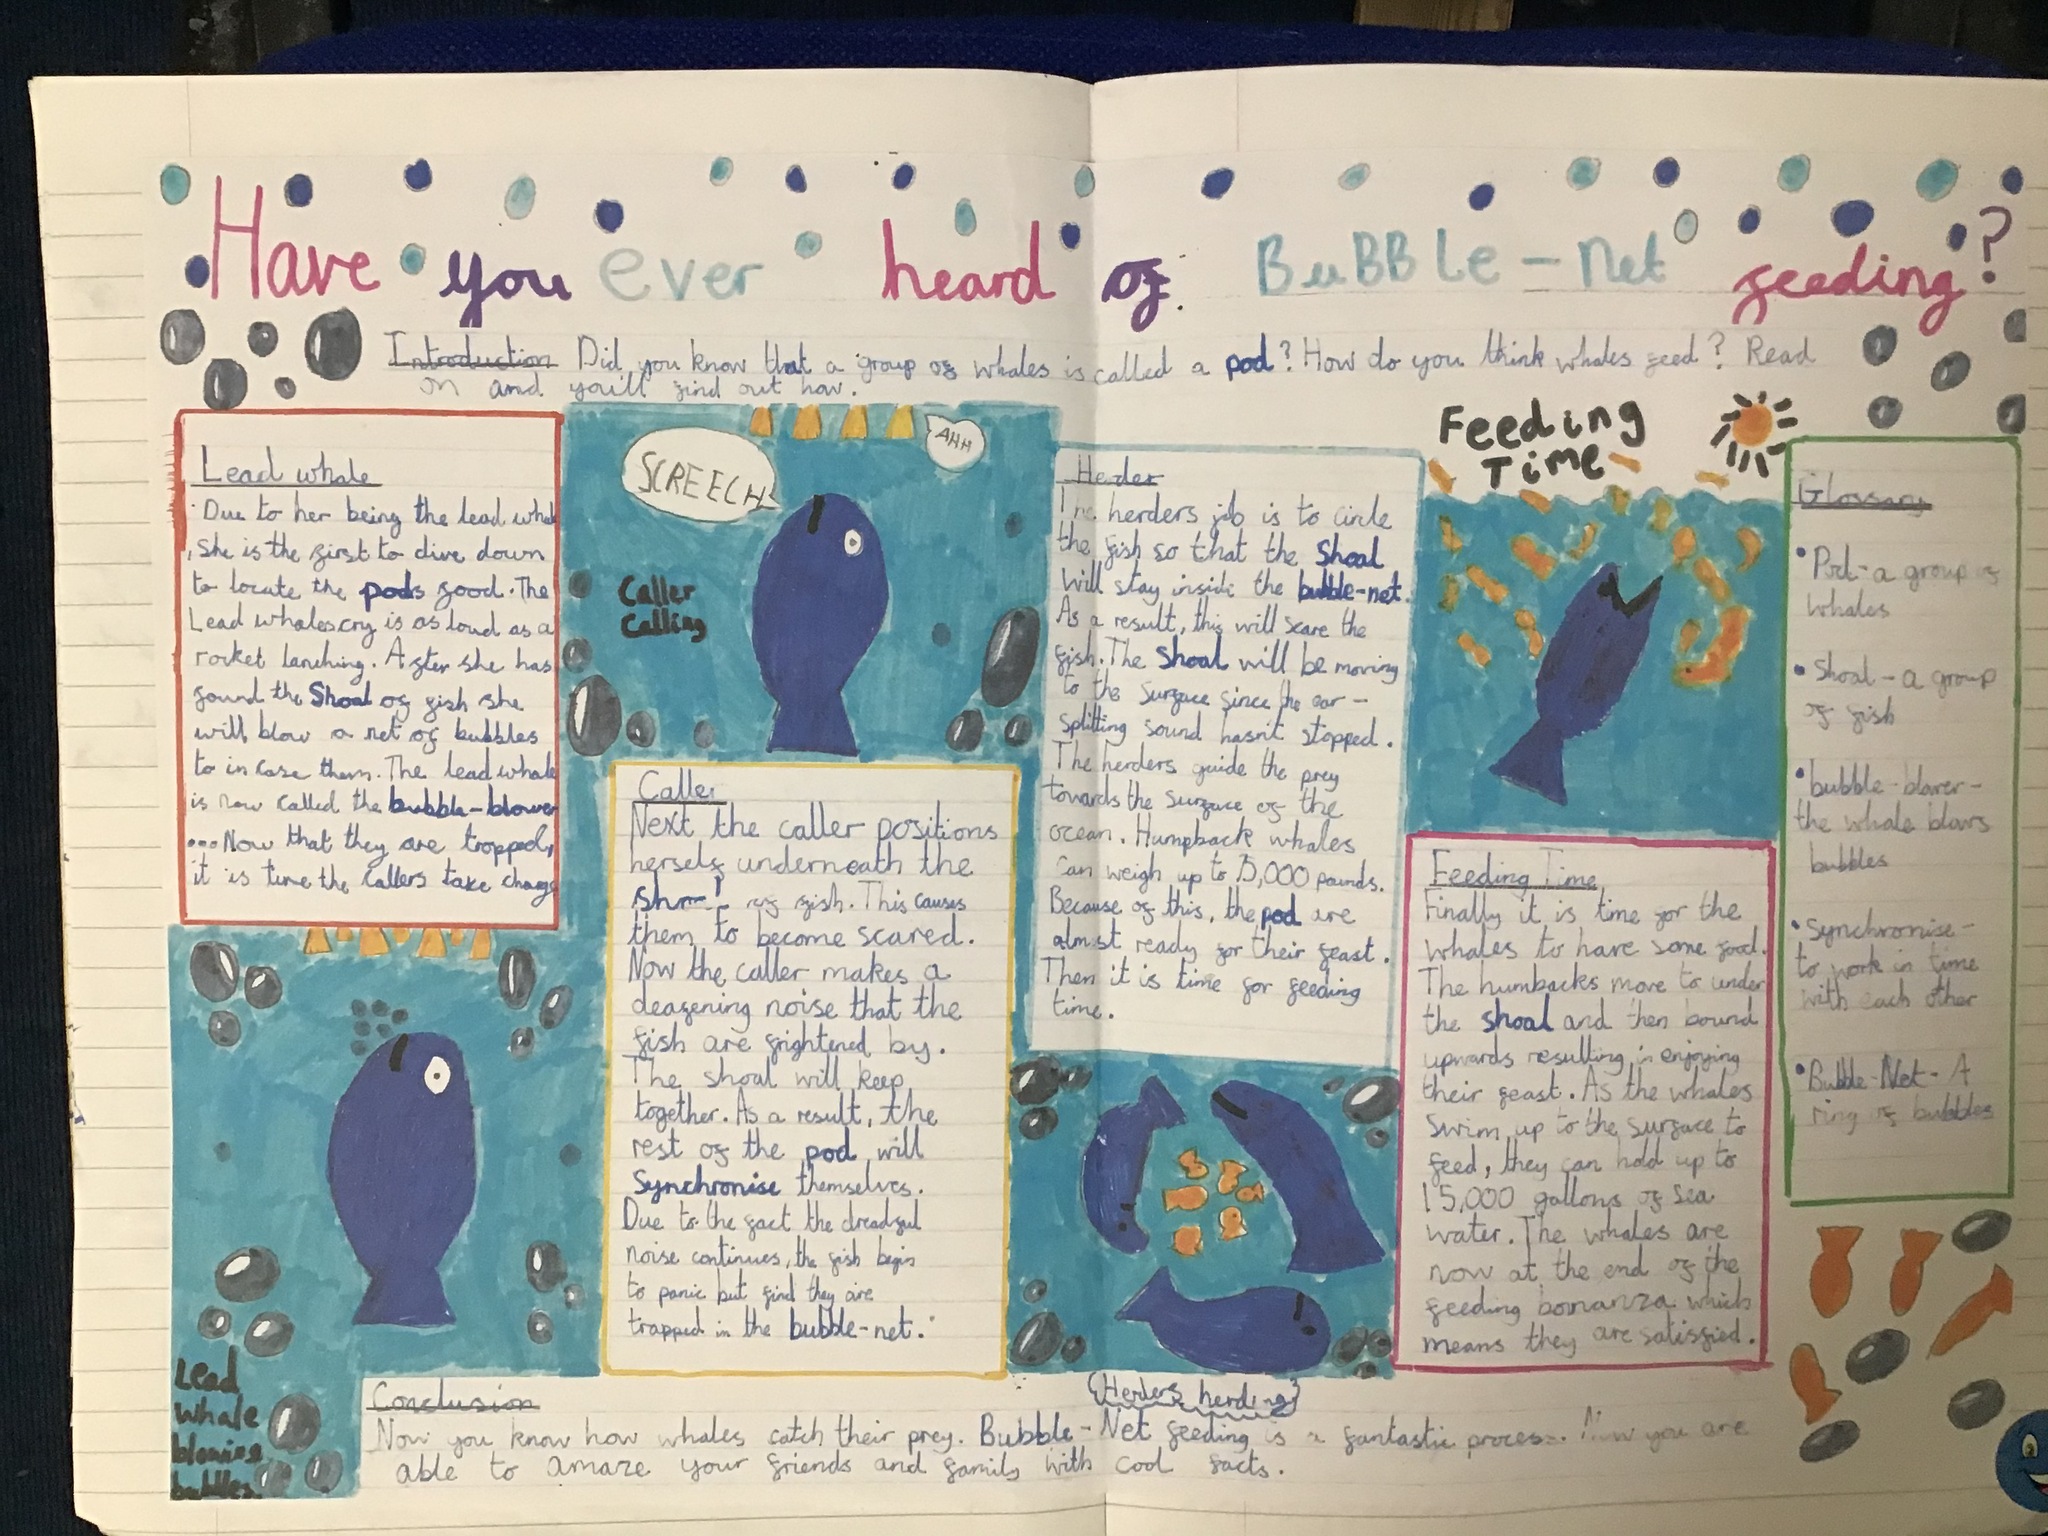 Have you ever heard of BuBBle-net feeding?
Introduction Did you know that a group of whales is called a pod? How do you think whales feed? Read
on and you'll find out how.
Lead whale
Due to her being the lead whale
, she is the first to dive down
to locate the pods food. The
Lead whales cry is as loud as a
rocket lanching. After she has
found the Shoal of fish she
will blow a net of bubbles
to in case them. The lead whale
is now called the bubble-blower
...Now that they are trapped,
it is time the callers take charge
SCREECH
AHH
Caller
Calling
Caller
Next the caller positions
herself underneath the
of fish. This causes
them to become scared.
Now the caller makes a
deafening noise that the
fish are frightened by.
The shoal will keep
together. As a result, the
rest of the pod will
Synchronise themselves.
Due to the fact the dreadful
noise continues, the fish begin
to panic but find they are
trapped in the bubble-net.
Lead
whale
blowing
bubbles.
Herder
The herders job is to circle
the fish so that the Shoal
will stay inside the bubble-net.
As a result, this will scare the
fish. The Shoal will be moving
to the surface since the ear-
splitting sound hasn't stopped.
The herders guide the prey
towards the surface of the
ocean. Humpback whales
can weigh up to pounds.
Because of this, the pod are
almost ready for their feast.
Then it is time for feeding
time.
Herders herding
Feeding
Time
Feeding Time
Finally it is time for the
whales to have some food.
The humbacks move to under
the shoal and then bound
upwards resulting in enjoying
their feast. As the whales
swim up to the surface to
feed, they can hold up to
15,000 gallons of sea
water. The whales are
now at the end of the
feeding bonanza which
means they are satisfied.
Glossary
• Pod - a group of
whales
• Shoal - a group
of fish
• bubble-blower-
the whale blows
bubbles
• Synchronise-
to work in time
with each other
• Bubble-Net - A
ring of bubbles
Conclusion
Now you know how whales catch their prey. Bubble-Net feeding is a fantastic process. Now you are
able to amaze your friends and family with cool facts.